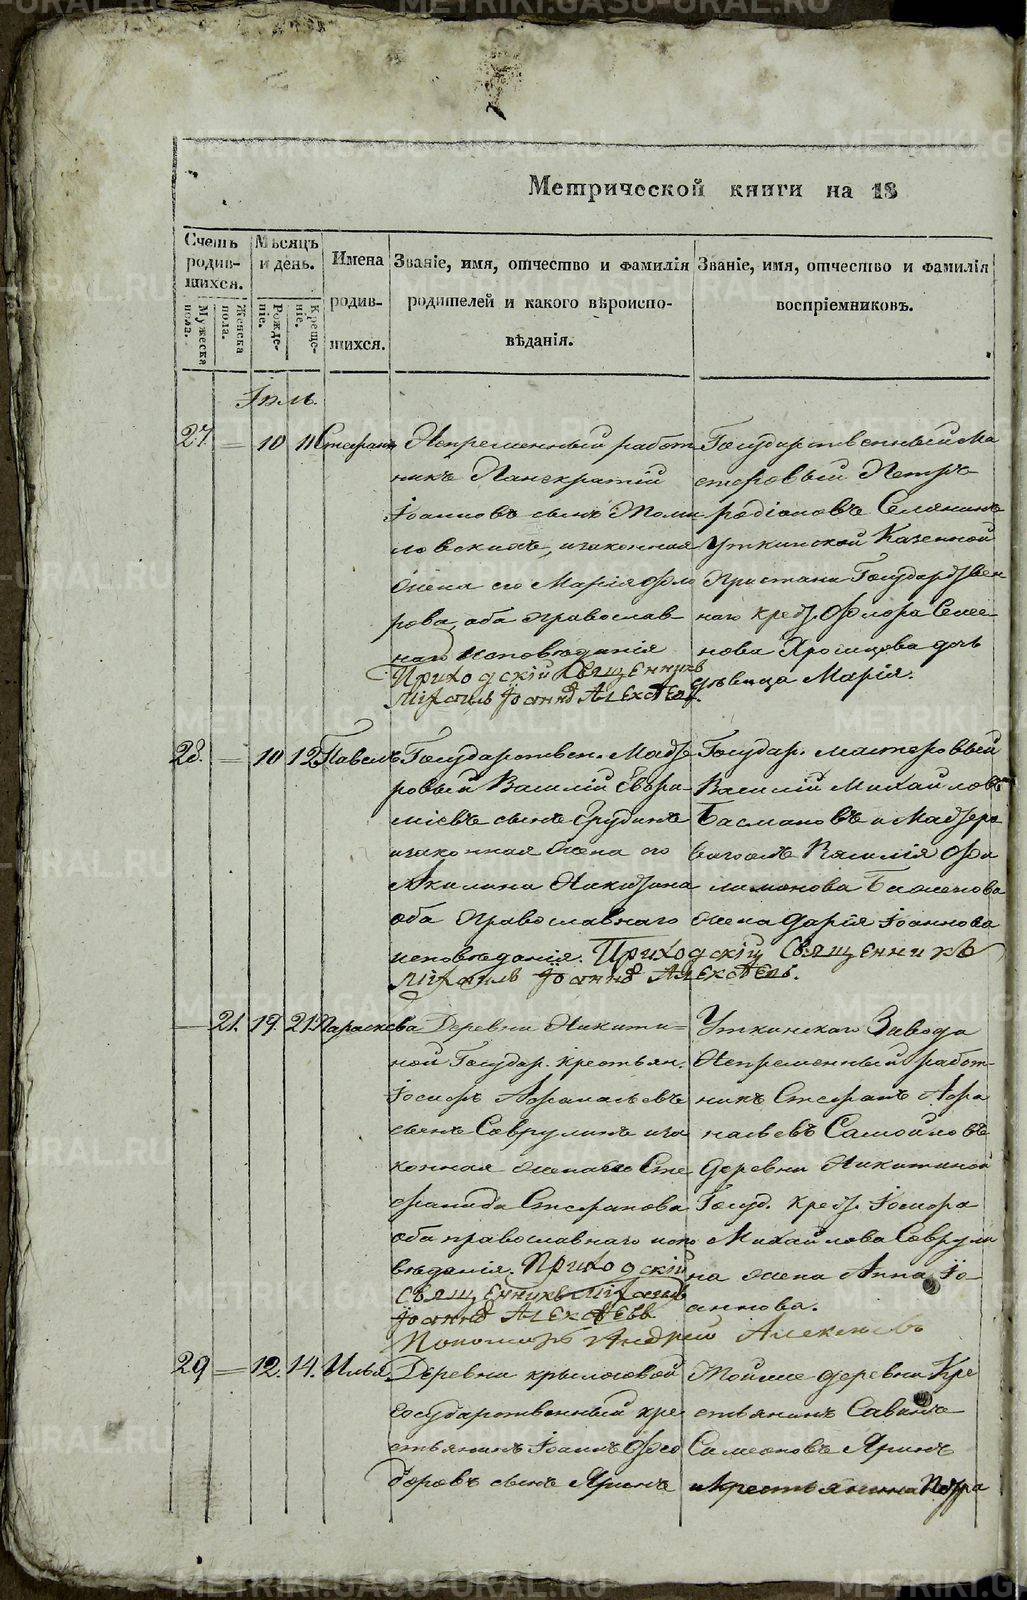 Метрической книги на 18
Счетъ родив- шихся.
Мужеска пола.
Женска пола.
Мѣсяцъ и день.
Рожде- ніе.
Креще- ніе.
Имена родив- шихся.
Званіе, имя, отчество и фамилія
родителей и какого вѣроиспо-
вѣданія.
Званіе, имя, отчество и фамилія
воспріемниковъ.
Іюль.
27. 10 11 Стефанъ
Непременный работ
никъ Панкратій
Іоанновъ сынъ Томи
ловскихъ, и законная
жена его Марія Фло
рова, оба православ
наго исповѣданія
Приходскій Священникъ
Михаилъ Іоанновъ Алексѣевъ.
Государственный ма
стеровый Петръ
Родіоновъ Селянинъ
Уткинской Казенной
Пристани Государствен
наго крест. Флора Семе
нова Хромцова дочь
дѣвица Марія.
28. 10 12 Павелъ
Государствен. Масте
ровый Василій Евфи
міевъ сынъ Грудинъ
и законная жена его
Акилина Никитина
оба православнаго
исповѣданія. Приходскій Священникъ
Михаилъ Іоанновъ Алексѣевъ.
Государ. мастеровый
Василій Михайловъ
Басмановъ и Мастеро
ваго Василія Фи
лимонова Баженова
жена Дарія Іоаннова
21. 19. 21. Параскева
Деревни Никити-
ной Государ. крестьян.
Іосифъ Афанасьевъ
сынъ Саврулинъ и за
конная жена его Сте
фанида Стефанова
оба православнаго испо
вѣданія. Приходскій
Священникъ Михаилъ
Іоанновъ Алексѣевъ
Пономарь Андрей Алексѣевъ
Уткинскаго Завода
Непременный работ-
никъ Стефанъ Афа
насьевъ Самойловъ
деревни Никитиной
Госуд. крест. Іосифа
Михайлова Саврули
на жена Анна Іо-
аннова.
29 12. 14. Илья
Деревни крылосовой
государственный кре
стьянинъ Іоаннъ Фео
доровъ сынъ Яринъ
Тойже деревни Кре
стьянинъ Савинъ
Симеоновъ Яринъ
и крестьянина Петра